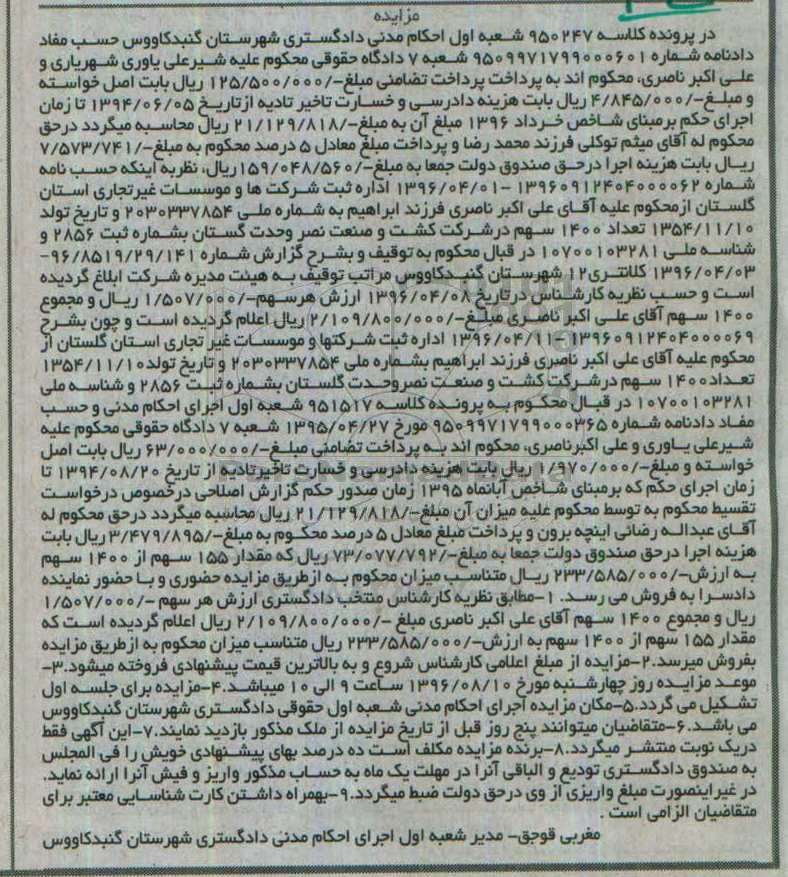 مزایده
در پرونده کلاسه ۹۵۰۲۴۷ شعبه اول احکام مدنی دادگستری شهرستان گنبدکاووس حسب مفاد
دادنامه شماره ۹۵۰۹۹۷۱۷۹۹۰۰۰۶۰۱ شعبه ۷ دادگاه حقوقی محکوم علیه شیرعلی یاوری شهریاری و
علی اکبر ناصری، محکوم اند به پرداخت پرداخت تضامنی مبلغ-/۱۲۵/۵۰۰/۰۰۰ ریال بابت اصل خواسته
و مبلغ-/۴/۸۴۵/۰۰۰ ریال بابت هزینه دادرسی و خسارت تاخیر تادیه ازتاریخ ۱۳۹۴/۰۶/۰۵ تا زمان
اجرای حکم برمبنای شاخص خرداد ۱۳۹۶ مبلغ آن به مبلغ-/۲۱/۱۲۹/۸۱۸ ریال محاسبه میگردد درحق
محکوم له آقای میثم توکلی فرزند محمد رضا و پرداخت مبلغ معادل ۵ درصد محکوم به مبلغ-/۷/۵۷۳/۷۴۱
ریال بابت هزینه اجرا درحق صندوق دولت جمعا به مبلغ-/۱۵۹/۰۴۸/۵۶۰ریال، نظربه اینکه حسب نامه
شماره ۱۳۹۶۰۹۱۲۴۰۴۰۰۰۰۶۲ –۱۳۹۶/۰۴/۰۱ اداره ثبت شرکت ها و موسسات غیرتجاری استان
گلستان ازمحکوم علیه آقای علی اکبر ناصری فرزند ابراهیم به شماره ملی ۲۰۳۰۳۳۷۸۵۴ و تاریخ تولد
۱۳۵۴/۱۱/۱۰ تعداد ۱۴۰۰ سهم درشرکت کشت و صنعت نصر وحدت گستان بشماره ثبت ۲۸۵۶ و
شناسه ملی ۱۰۷۰۰۱۰۳۲۸۱ در قبال محکوم به توقیف و بشرح گزارش شماره ۹۶/۸۵۱۹/۲۹/۱۴۱-
۱۳۹۶/۰۴/۰۳ کلانتری۱۲ شهرستان گنبدکاووس مراتب توقیف به هیئت مدیره شرکت ابلاغ گردیده
است و حسب نظریه کارشناس درتاریخ ۱۳۹۶/۰۴/۰۸ ارزش هرسهم-/۱/۵۰۷/۰۰۰ ریال و مجموع
۱۴۰۰ سهم آقای علی اکبر ناصری مبلغ-/۲/۱۰۹/۸۰۰/۰۰۰ ریال اعلام گردیده است و چون بشرح
۱۳۹۶۰۹۱۲۴۰۴۰۰۰۰۶۹ -۱۳۹۶/۰۴/۱۱ اداره ثبت شرکتها و موسسات غیر تجاری استان گلستان از
محکوم علیه آقای علی اکبر ناصری فرزند ابراهیم بشماره ملی ۲۰۳۰۳۳۷۸۵۴ و تاریخ تولد۱۳۵۴/۱۱/۱۰
تعداد۱۴۰۰ سهم درشرکت کشت و صنعت نصروحدت گلستان بشماره ثبت ۲۸۵۶ و شناسه ملی
۱۰۷۰۰۱۰۳۲۸۱ در قبال محکوم به پرونده کلاسه ۹۵۱۵۱۷ شعبه اول اجرای احکام مدنی و حسب
مفاد دادنامه شماره ۹۵۰۹۹۷۱۷۹۹۰۰۰۳۶۵ مورخ ۱۳۹۵/۰۴/۲۷ شعبه ۷ دادگاه حقوقی محکوم علیه
شیرعلی یاوری و علی اکبرناصری، محکوم اند به پرداخت تضامنی مبلغ-/۶۳/۰۰۰/۰۰۰ ریال بابت اصل
خواسته و مبلغ-/۱/۹۷۰/۰۰۰ ریال بابت هزینه دادرسی و خسارت تاخیرتادیه از تاریخ ۱۳۹۴/۰۸/۲۰ تا
زمان اجرای حکم که برمبنای شاخص آبانماه ۱۳۹۵ زمان صدور حکم گزارش اصلاحی درخصوص درخواست
تقسیط محکوم به توسط محکوم علیه میزان آن مبلغ-/۲۱/۱۲۹/۸۱۸ ریال محاسبه میگردد درحق محکوم له
آقای عبداله رضائی اینچه برون و پرداخت مبلغ معادل ۵ درصد محکوم به مبلغ-/۳/۴۷۹/۸۹۵ ریال بابت
هزینه اجرا درحق صندوق دولت جمعا به مبلغ-/۷۳/۰۷۷/۷۹۲ ریال که مقدار ۱۵۵ سهم از ۱۴۰۰ سهم
به ارزش-/۲۳۳/۵۸۵/۰۰۰ ریال متناسب میزان محکوم به ازطریق مزایده حضوری و با حضور نماینده
دادسرا به فروش می رسد. ۱-مطابق نظریه کارشناس منتخب دادگستری ارزش هر سهم -/۱/۵۰۷/۰۰۰
ریال و مجموع ۱۴۰۰ سهم آقای علی اکبر ناصری مبلغ -/۲/۱۰۹/۸۰۰/۰۰۰ ریال اعلام گردیده است که
مقدار ۱۵۵ سهم از ۱۴۰۰ سهم به ارزش-/۲۳۳/۵۸۵/۰۰۰ ریال متناسب میزان محکوم به ازطریق مزایده
بفروش میرسد.۲-مزایده از مبلغ اعلامی کارشناس شروع و به بالاترین قیمت پیشنهادی فروخته میشود.۳-
موعد مزایده روز چهارشنبه مورخ ۱۳۹۶/۰۸/۱۰ ساعت ۹ الی ۱۰ میباشد.۴-مزایده برای جلسه اول
تشکیل می گردد.۵-مکان مزایده اجرای احکام مدنی شعبه اول حقوقی دادگستری شهرستان گنبدکاووس
می باشد.۶-متقاضیان میتوانند پنج روز قبل از تاریخ مزایده از ملک مذکور بازدید نمایند.۷-این آگهی فقط
دریک نوبت منتشر میگردد.۸-برنده مزایده مکلف است ده درصد بهای پیشنهادی خویش را فی المجلس
به صندوق دادگستری تودیع و الباقی آنرا در مهلت یک ماه به حساب مذکور واریز و فیش آنرا ارائه نماید.
در غیراینصورت مبلغ واریزی از وی درحق دولت ضبط میگردد.۹-بهمراه داشتن کارت شناسایی معتبر برای
متقاضیان الزامی است .
مغربی قوجق- مدیر شعبه اول اجرای احکام مدنی دادگستری شهرستان گنبدکاووس